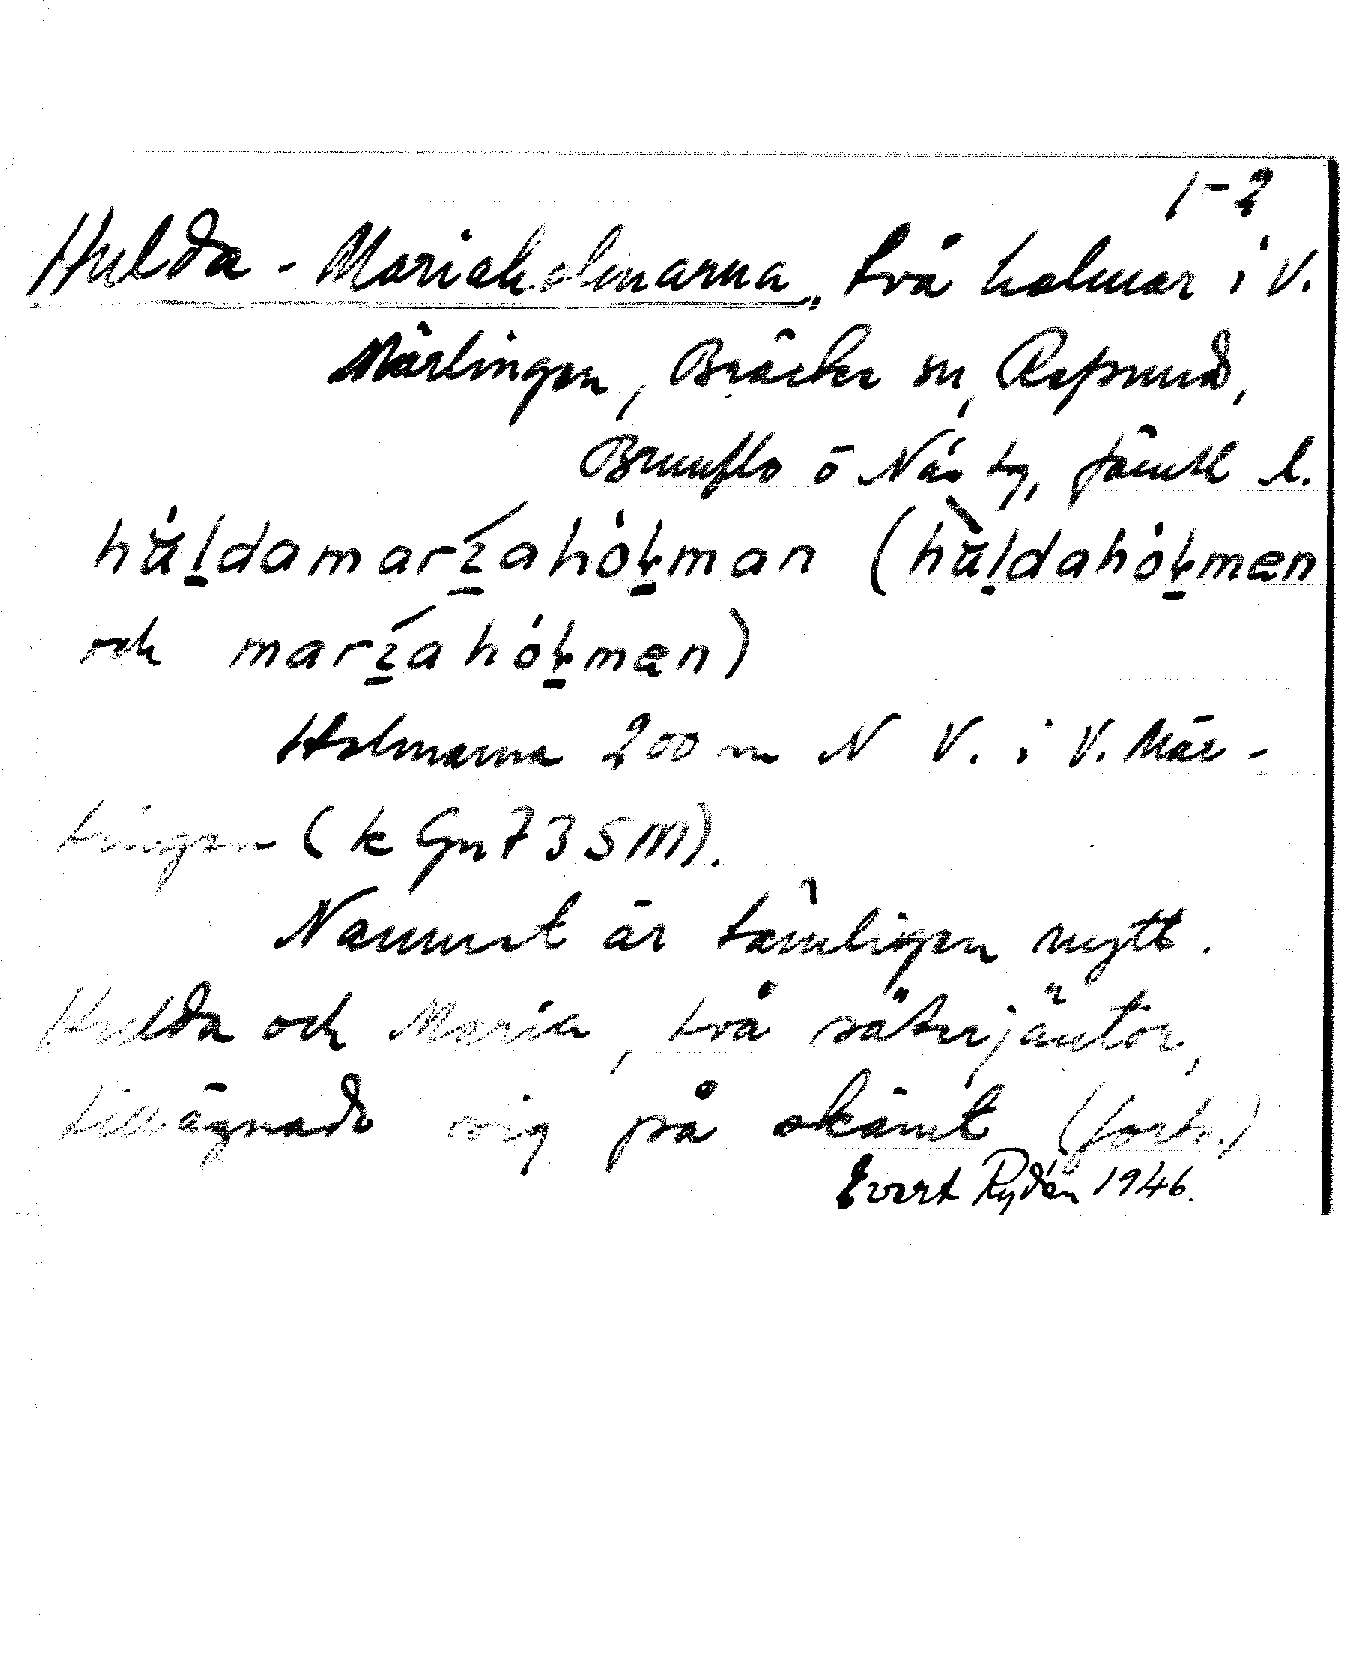 1-2
Hulda - Mariaholmarna, två holmar i V.
Märlingen, Bräcke sn, Refsund,
Brunflo o Näs tg, Jämtl l.
hå̀ḻdamarí̱ahòḻman (hå̀ḷdahòḻmen
och marí̱ahòḻmen)
Holmarna 200 m N V. i V. Mär-
lingen (k Gn 73 SM).
Namnet är tämligen nytt.
Hulda och Maria, två säterjäntor,
tillägnade sig på skämt (forts.)
Evert Rydén 1946.